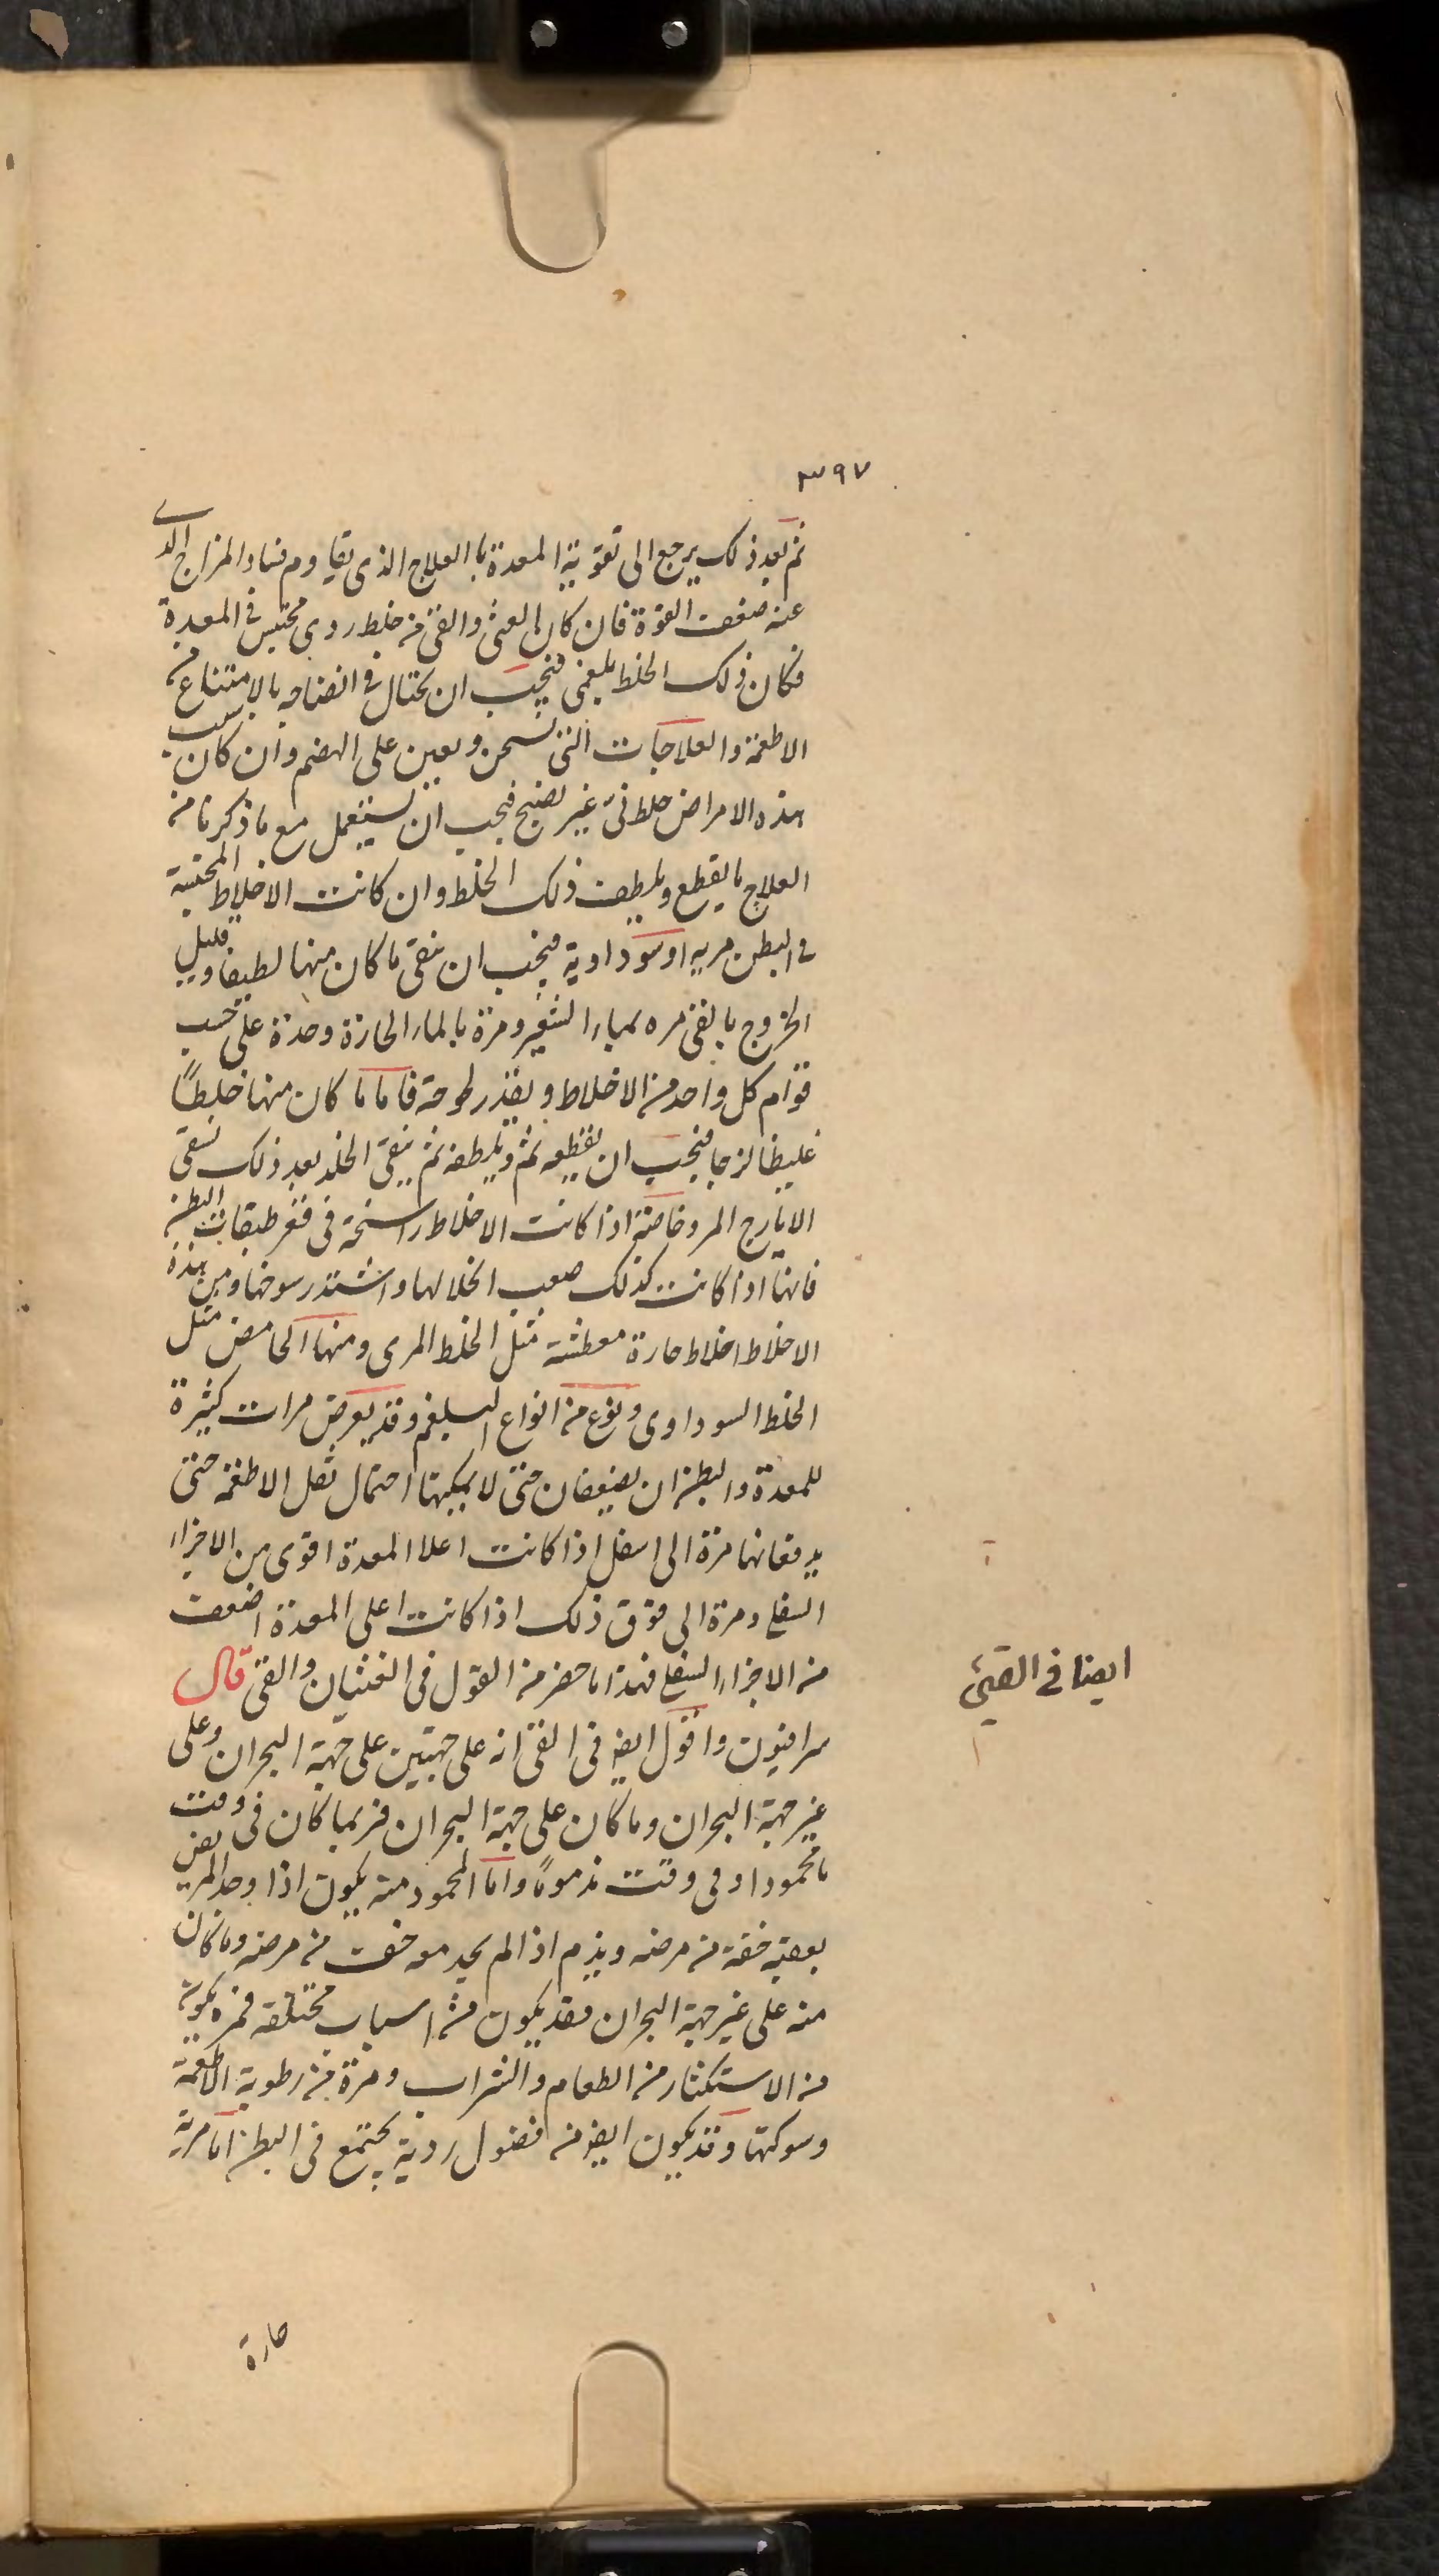 ٣٩٧
ثم بعد ذلك يرجع الى تقوية المعدة با العلاج الذى يقاوم فساد المزاج الذى
عنه ضعفت القوة فان كان الغثى والقئ من خلط ردى محتبس فى المعدة
فكان ذلك الخلط بلغمى فيجب ان يحتال فى انضاجه بالامتناع من
الاطعمة والعلاجات التى تسخن وتعين على الهضم وان كان سبب
هذه الامراض خلط نئ غير نضيج فيجب ان يستعمل مع ما ذكرنا من
العلاج ما يقطع ويلطف ذلك الخلط وان كانت الاخلاط المحتبسة
فى البطن مريه او سوداوية فيجب ان ينقى ما كان منها لطيفا وقليل
الخروج بالقئ مره بماء الشعير ومرة بالماء الحارة وحدة على حسب
قوام كل واحد من الاخلاط وبقدر لحوحة فاما ما كان منها خلطًا
غليظا لزجا فيجب ان يقطعه ثم ويلطفه ثم ينقى الخلد بعد ذلك تسقى
الايارج المر وخاصة اذا كانت الاخلاط راسخة فى قعر طبقات البطن
فانها اذا كانت كذلك صعب انحلالها واشتد رسوخها ومن هذه
الاخلاط اخلاط حارة معطشة مثل الخلط المرى ومنها الحامض مثل
الخلط السوداوى ونوع من انواع البلغم وقد يعرض مرات كثيرة
للمعدة والبطن ان يضيعفان حتى لا يمكنها احتمال ثقل الاطعمة حتى
يدفعانها مرة الى اسفل اذا كانت اعلا المعدة اقوى من الاجزاء
السفلى ومرة الى فوق ذلك اذا كانت اعلى المعدة اضعف
من الاجزاء السفلى فهذا ما حضر من القول فى الغثيان والقئ قال
سرافيون واقول ايضا فى القئ انه على جهتين على جهة البحران وعلى
غير جهة البحران وما كان على جهة البحران فربما كان فى وقت
ما محمودا وفى وقت مذمومًا واما المحمود منه يكون اذا وجد المريض
بعقبه خفة من مرضه ويذم اذا لم يجد معه خف من مرضه وما كان
منه على غير جهة البحران فقد يكون من اسباب مختلفه فمره يكون
من الاستكثار من الطعام والشراب ومرة من رطوبة الاطعمة
وسوكتها وقد يكون ايضا من فضول ردية يجتمع فى البطن اما مرية
ايضا فى القيئ
حارة